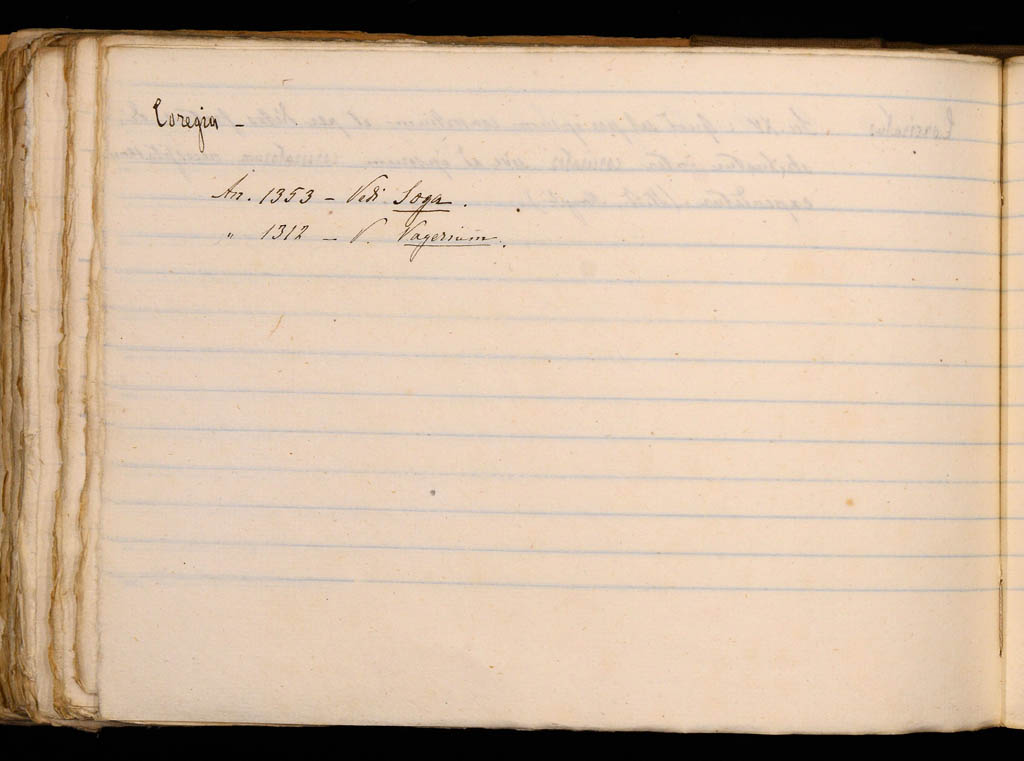 Coregia –
An. 1353 – Vedi Soga.
" 1312 – V. Vagerium.